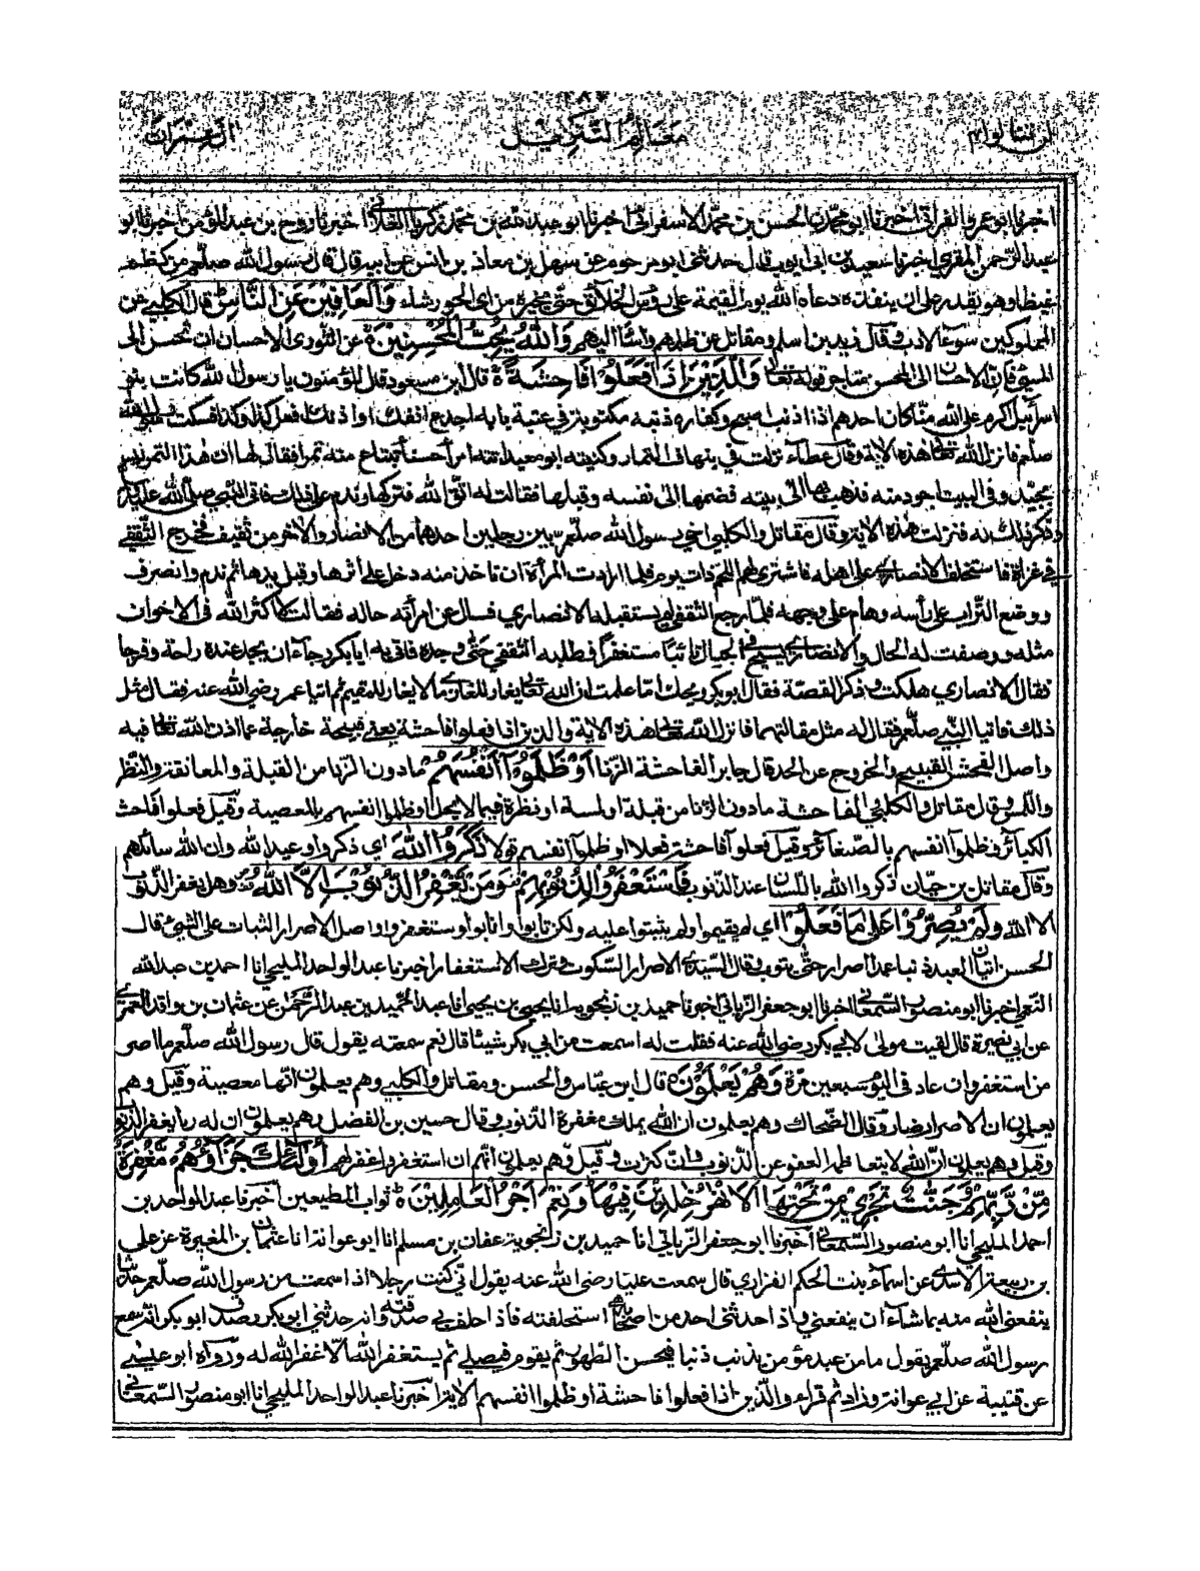 لن تنالوا ٤ معالم التنزيل ال عمران
اخبرنا ابو عمرو الفراتى اخبرنا ابو محمد بن الحسن بن محمد الاسفرائنى اخبرنا ابو عبد الله بن محمد زكريا العلائى اخبرنا روح بن عبد المؤمن اخبرنا ابو
عبد الرحمن المقرى اخبرنا سعيد بن ابى ايوب قال حدثنى ابو مرحوم عن سهل بن معاذ بن انس عن ابيه قال قال رسول الله صلعم من كظم
غيظا وهو يقدر على ان ينفذه دعاه الله يوم القيمة على روس الخلائق حتى يخيره من اى الحور شاء والعافين عن الناس قال الكلبى عن
المملوكين سوء الادب وقال زيد بن اسلم ومقاتل عن ظلمهم واساء اليهم والله يحب المحسنين ة عن الثورى الاحسان ان تحسن الى
المسئ فان الاحسان الى المحسن متاجرة قوله تعالى والذين اذا فعلوا فاحشة ة قال ابن مسعود قال المؤمنون يا رسول الله كانت بنو
اسرائيل اكرم على الله منا كان احدهم اذا اذنب اصبح وكفارة ذنبه مكتوبة فى عتبة بابه اجدع انفك او اذنك افعل كذا وكذا فسكت رسول الله
صلعم فانزل الله تعالى هذه الاية وقال عطاء نزلت فى نبهان التمار وكنيته ابو معبد اتته امرأة حسناء تبتاع منه تمرا فقال لها ان هذا التمر ليس
بجيد وفى البيت اجود منه فذهب بها الى بيته فضمها الى نفسه وقبلها فقالت له اتق الله فتركها وندم على ذلك فاتى النبى صلى الله عليه وسلم
وذكر ذلك له فنزلت هذه الاية وقال مقاتل والكلبى اخى رسول الله صلعم بين رجلين احدهما من الانصار والاخر من ثقيف فخرج الثقفى
فى غزاة فاستخلف الانصارى على اهله فاشترى لهم اللحم ذات يوم فلما ارادت المرأة ان تاخذ منه دخل على اثرها وقبل يدها ثم ندم وانصرف
ووضع التراب على رأسه وهام على وجهه فلما رجع الثقفى لم يستقبله الانصاري فسال عن امرأته حاله فقالت لا اكثر الله فى الاخوان
مثله ووصفت له الحال والانصارى يسيح فى الجبال تائبا مستغفرا فطلبه الثقفي حتى وجده فاتى به ابا بكر رجاء ان يجد عنده راحة وفرجا
فقال الانصاري هلكت وذكر القصة فقال ابو بكر ويحك اما علمت ان الله تعالى يغار للغازى ما لا يغار للمقيم ثم اتيا عمر رضى الله عنه فقال مثل
ذلك فاتيا النبى صلعم فقال له مثل مقالتهما فانزل الله تعالى هذه الاية والذين اذا فعلوا فاحشة يعنى قبيحة خارجة عما اذن الله تعالى فيه
واصل الفحش القبيح والخروج عن الحد قال جابر الفاحشة الزنا او ظلموا انفسهم ما دون الزنا من القبلة والمعانقة والنظر
واللمس وقال مقاتل والكلبى الفاحشة ما دون الزنا من قبلة او لمسة او نظرة فيما لا يحل او ظلموا انفسهم بالمعصية وقيل فعلوا فاحشة
الكبائر وظلموا انفسهم بالصغائر وقيل فعلوا فاحشة فعلا او ظلموا انفسهم قولا ذكروا الله اي ذكروا وعيد الله وان الله سائلهم
وقال مقاتل بن حيان ذكروا الله باللسان عند الذنوب فاستغفروا لذنوبهم ومن يغفر الذنوب الا الله وهل يغفر الذنوب
الا الله ولم يصروا على ما فعلوا اي لم يقيموا ولم يثبتوا عليه ولكن تابوا وانابوا واستغفروا واصل الاصرار الثبات على الشئ قال
الحسن اتيان العبد ذنبا عمدا اصرار حتى يتوب وقال السدى الاصرار السكوت وترك الاستغفار اخبرنا عبد الواحد المليحى انا احمد بن عبد الله
النعيمى اخبرنا ابو منصور السمعانى اخبرنا ابو جعفر الريانى اخبرنا حميد بن زنجويه انا يحيى بن يحيى انا عبد الحميد بن عبد الرحمن عن عثمان بن واقد العمرى
عن ابى نصيرة قال لقيت مولى لابي بكر رضى الله عنه فقلت له اسمعت من ابي بكر شيئا قال نعم سمعته يقول قال رسول الله صلعم ما اصر
من استغفر وان عاد فى اليوم سبعين مرة وهم يعلمون ة قال ابن عباس والحسن ومقاتل والكلبى وهم يعلمون انها معصية وقيل وهم
يعلمون ان الاصرار ضار وقال الضحاك وهم يعلمون ان الله يملك مغفرة الذنوب وقال حسين بن الفضل وهم يعلمون ان له ربا يغفر الذنوب
وقيل وهم يعلمون ان الله لا يتعاظم العفو عن الذنوب وان كثرت وقيل وهم يعلمون انهم ان استغفروا غفر لهم أولئك جزاؤهم مغفرة
من ربهم وجنت تجرى من تحتها الانهر خلدين فيها ونعم اجر العاملين ة ثواب المطيعين اخبرنا عبد الواحد بن
احمد المليحى انا ابو منصور السمعانى اخبرنا ابو جعفر الريانى انا حميد بن زنجوية عفان بن مسلم انا ابو عوانة انا عثمان بن المغيرة عن على
بن ربيعة الاسدى عن اسماء بنت الحكم الفزاري قال سمعت عليا رضى الله عنه يقول انى كنت رجلا اذا سمعت من رسول الله صلعم حديثا
ينفعنى الله منه بما شاء ان ينفعنى واذا حدثنى احد من اصحابه استحلفته فاذا حلف لى صدقته وانه حدثنى ابو بكر وصدق ابو بكر انه سمع
رسول الله صلعم يقول ما من عبد مؤمن يذنب ذنبا فيحسن الطهور ثم يقوم فيصلى ثم يستغفر الله الا غفر الله له ورواه ابو عيسى
عن قتيبة عن ابي عوانة وزاد ثم قراء والذين اذا فعلوا فاحشة او ظلموا انفسهم الاية اخبرنا عبد الواحد المليحى انا ابو منصور السمعانى